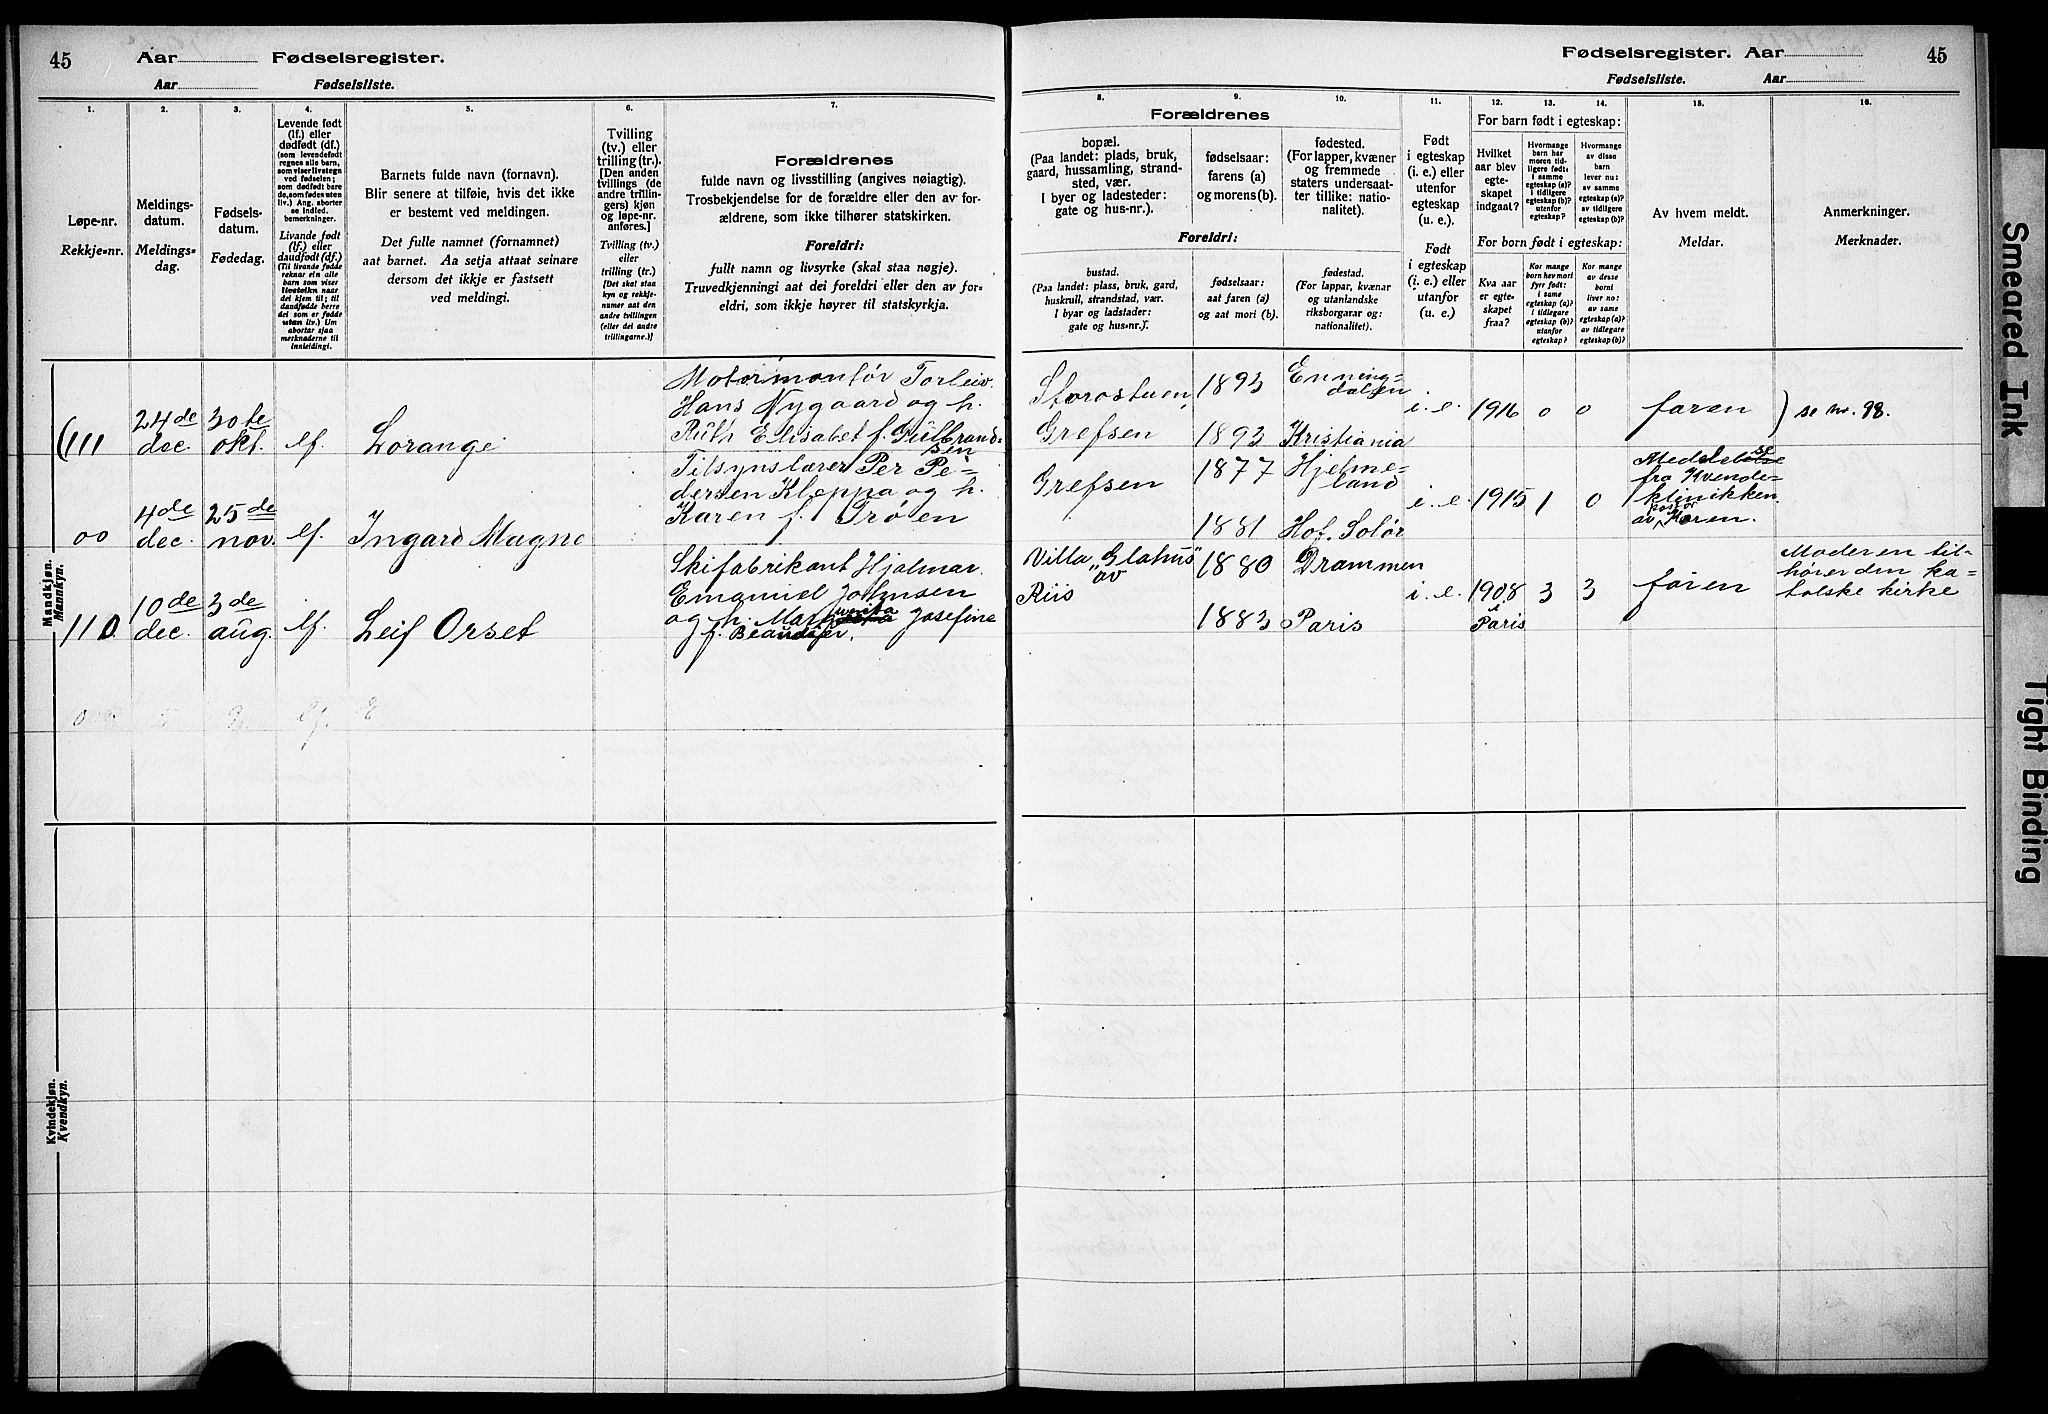 45
Aar
Fødselsregister.
Aar
Fødselsliste.
1.
2.
3.
4.
5.
6.
7.
Løpe-nr.
Rekkje-nr.
Meldings-
datum.
Meldings-
dag.
Fødsels-
datum.
Fødedag.
Levende født
(lf.) eller
dødfødt (df.)
(som levendefødt
regnes alle barn,
som viser livstegn
ved fødselen;
som dødfødt bare
de, som fødes uten
liv.) Ang. aborter
se indled.
bemerkninger.
Livande født
(lf.) eller
daudfødt (df.)
(Til livande fødde
reknar ein alle
barn som viser
livsteikn naar
dei kjem til; til
daudfødde berre
dei som er fødde
utan liv.) Um
abortar sjaa
merknaderne til
innleidingi.
Barnets fulde navn (fornavn).
Blir senere at tilføie, hvis det ikke
er bestemt ved meldingen.
Det fulle namnet (fornamnet)
aat barnet. Aa setja attaat seinare
dersom det ikkje er fastsett
ved meldingi.
Tvilling
(tv.) eller
trilling (tr.).
[Den anden
tvillings (de
andre trillin-
gers) kjøn
og løpe-nr.
anføres.]
Tvilling (tv.)
eller
trilling (tr.)
[Det skal staa
kyn og rekkje-
numer aat den
andre tvillingen
(eller dei andre
trillingarne.)]
Forældrenes
fulde navn og livsstilling (angives nøiagtig).
Trosbekjendelse for de forældre eller den av for-
ældrene, som ikke tilhører statskirken.
Foreldri:
fullt namn og livsyrke (skal staa nøgje).
Truvedkjenningi aat dei foreldri eller den av for-
eldri, som ikkje høyrer til statskyrkja.
Mandkjøn.
Mannkyn.
(111
24de
dec.
30te
okt.
lf.
Lorange
Motormontør Torleiv
Hans Nygaard og h.
Ruth Elisabet f. Gulbrand-
sen
00
4de
dec.
25de
nov.
lf.
Ingard Magne
Tilsynslærer Per Pe-
dersen Kleppa og h.
Karen f. Trøen
110
10de
dec.
3de
aug.
lf.
Leif Orset
Skifabrikant Hjalmar
Emanuel Johnsen
og h. Margverita Josefine
f.
Kvindekjøn.
Kvendkyn.
Fødselsregister. Aar
45
Fødselsliste.
Aar
8.
9.
10.
11.
12.
13.
14.
15.
16.
Forældrenes
bopæl.
(Paa landet: plads, bruk,
gaard, hussamling, strand-
sted, vær.
I byer og ladesteder:
gate og hus-nr.).
fødselsaar:
farens (a)
og morens (b).
fødested.
(For lapper, kvæner
og fremmede
staters undersaat-
ter tillike: natio-
nalitet).
Foreldri:
bustad.
(Paa landet: plass, bruk, gard,
huskrull, strandstad, vær.
I byar og ladstader:
gate og hus-nr.).
fødselsaar:
aat faren (a)
og aat mori (b).
fødestad.
(For lappar, kvænar
og utanlandske
riksborgarar og:
nationalitet).
Født
i egteskap
(i. e.) eller
utenfor
egteskap
(u. e.).
Født
i egteskap
(i. e.) eller
utanfor
(u. e.)
For barn født i egteskap:
Hvilket
aar blev
egte-
skapet
indgaat?
Hvormange
barn har
moren tid-
ligere født:
i samme
egteskap (a)?
i tidligere
egteskap (b)?
utenfor
egteskap?
Hvormange
av disse
barn
lever nu:
av samme
egteskap (a)?
av tidligere
egteskap (b)?
For born født i egteskap:
Kva aar
er egte-
skapet
fraa?
Kor mange
born hev mori
fyrr født:
i same
egteskap (a)?
i tidlegare
egteskap (b)?
utanfor
egteskap?
Kor mange
av desse
borni
liver no:
av same
egteskap (a)?
av tidlegare
egteskap (b)?
Av hvem meldt.
Meldar.
Anmerkninger.
Merknader.
Storostuen,
Grefsen
1893
1893
Enning-
dalen
Kristiania
i. e.
1916
0
0
faren
) se nr. 98.
Grefsen
1877
1881
Hjelme-
land
Hof. Solør
i. e.
1915
1
0
fra Kvinde-
klinikken
av Moren.
Villa "Glahus"
av
Riis
1880
1883
Drammen
Paris
i. e.
1908
i
Paris
3
3
faren
Moderen til-
hører den ka-
tolske kirke
Smeared Ink
Tight Binding